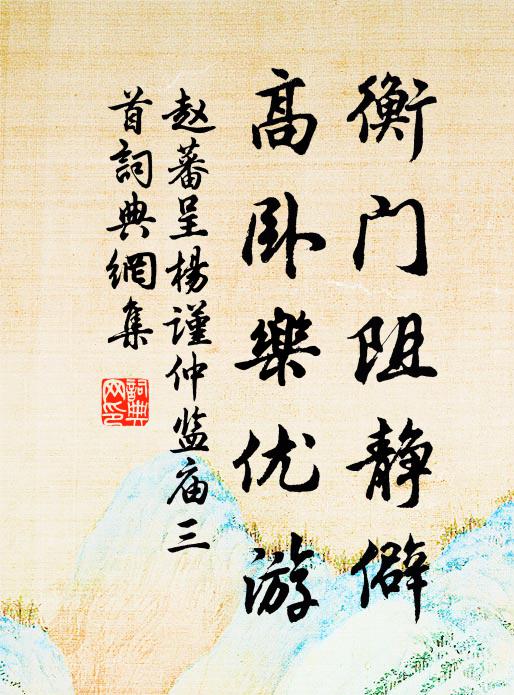 衡门阻静僻
高卧樂优游
赵蕃呈楊谨仲监庙三
首詞典網集
詞典网印